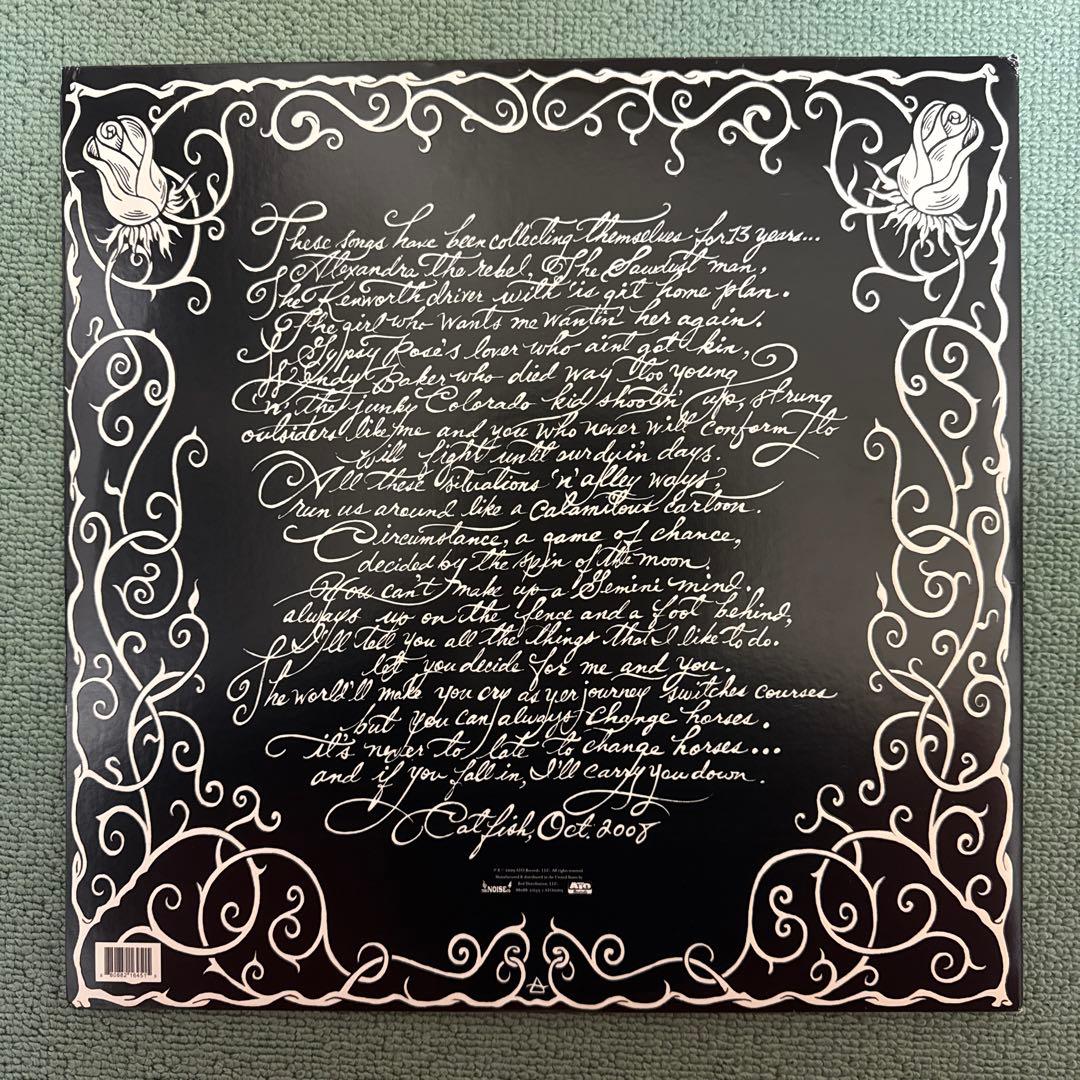 These songs have been collecting themselves for 13 years...
Alexandra the rebel, The Sawdust man,
The Kenworth driver with 'is git home plan.
The girl who wants me wantin' her again.
Gypsy Rose's lover who aint got kin,
Wendy Baker who died way too young
'n' the junky Colorado kid shootin' up, strung
outsiders like me and you who never will conform to
will fight until our dyin days.
All these situations 'n' alley ways,
run us around like a calamitous cartoon.
Circumstance, a game of chance,
decided by the spin of the moon.
You can't make up a Gemini mind.
always up on the fence and a foot behind,
I'll tell you all the things that I like to do.
let you decide for me and you.
The world'll make you cry as yer journey switches courses
but you can always change horses.
it's never to late to change horses...
and if you fall in, I'll carry you down.
Catfish, Oct. 2008
ATO Records, LLC. All rights reserved
Manufactured & distributed in the United States by
Red Distribution, LLC.
NOISE
ATO
Records
8 80882 16451 9